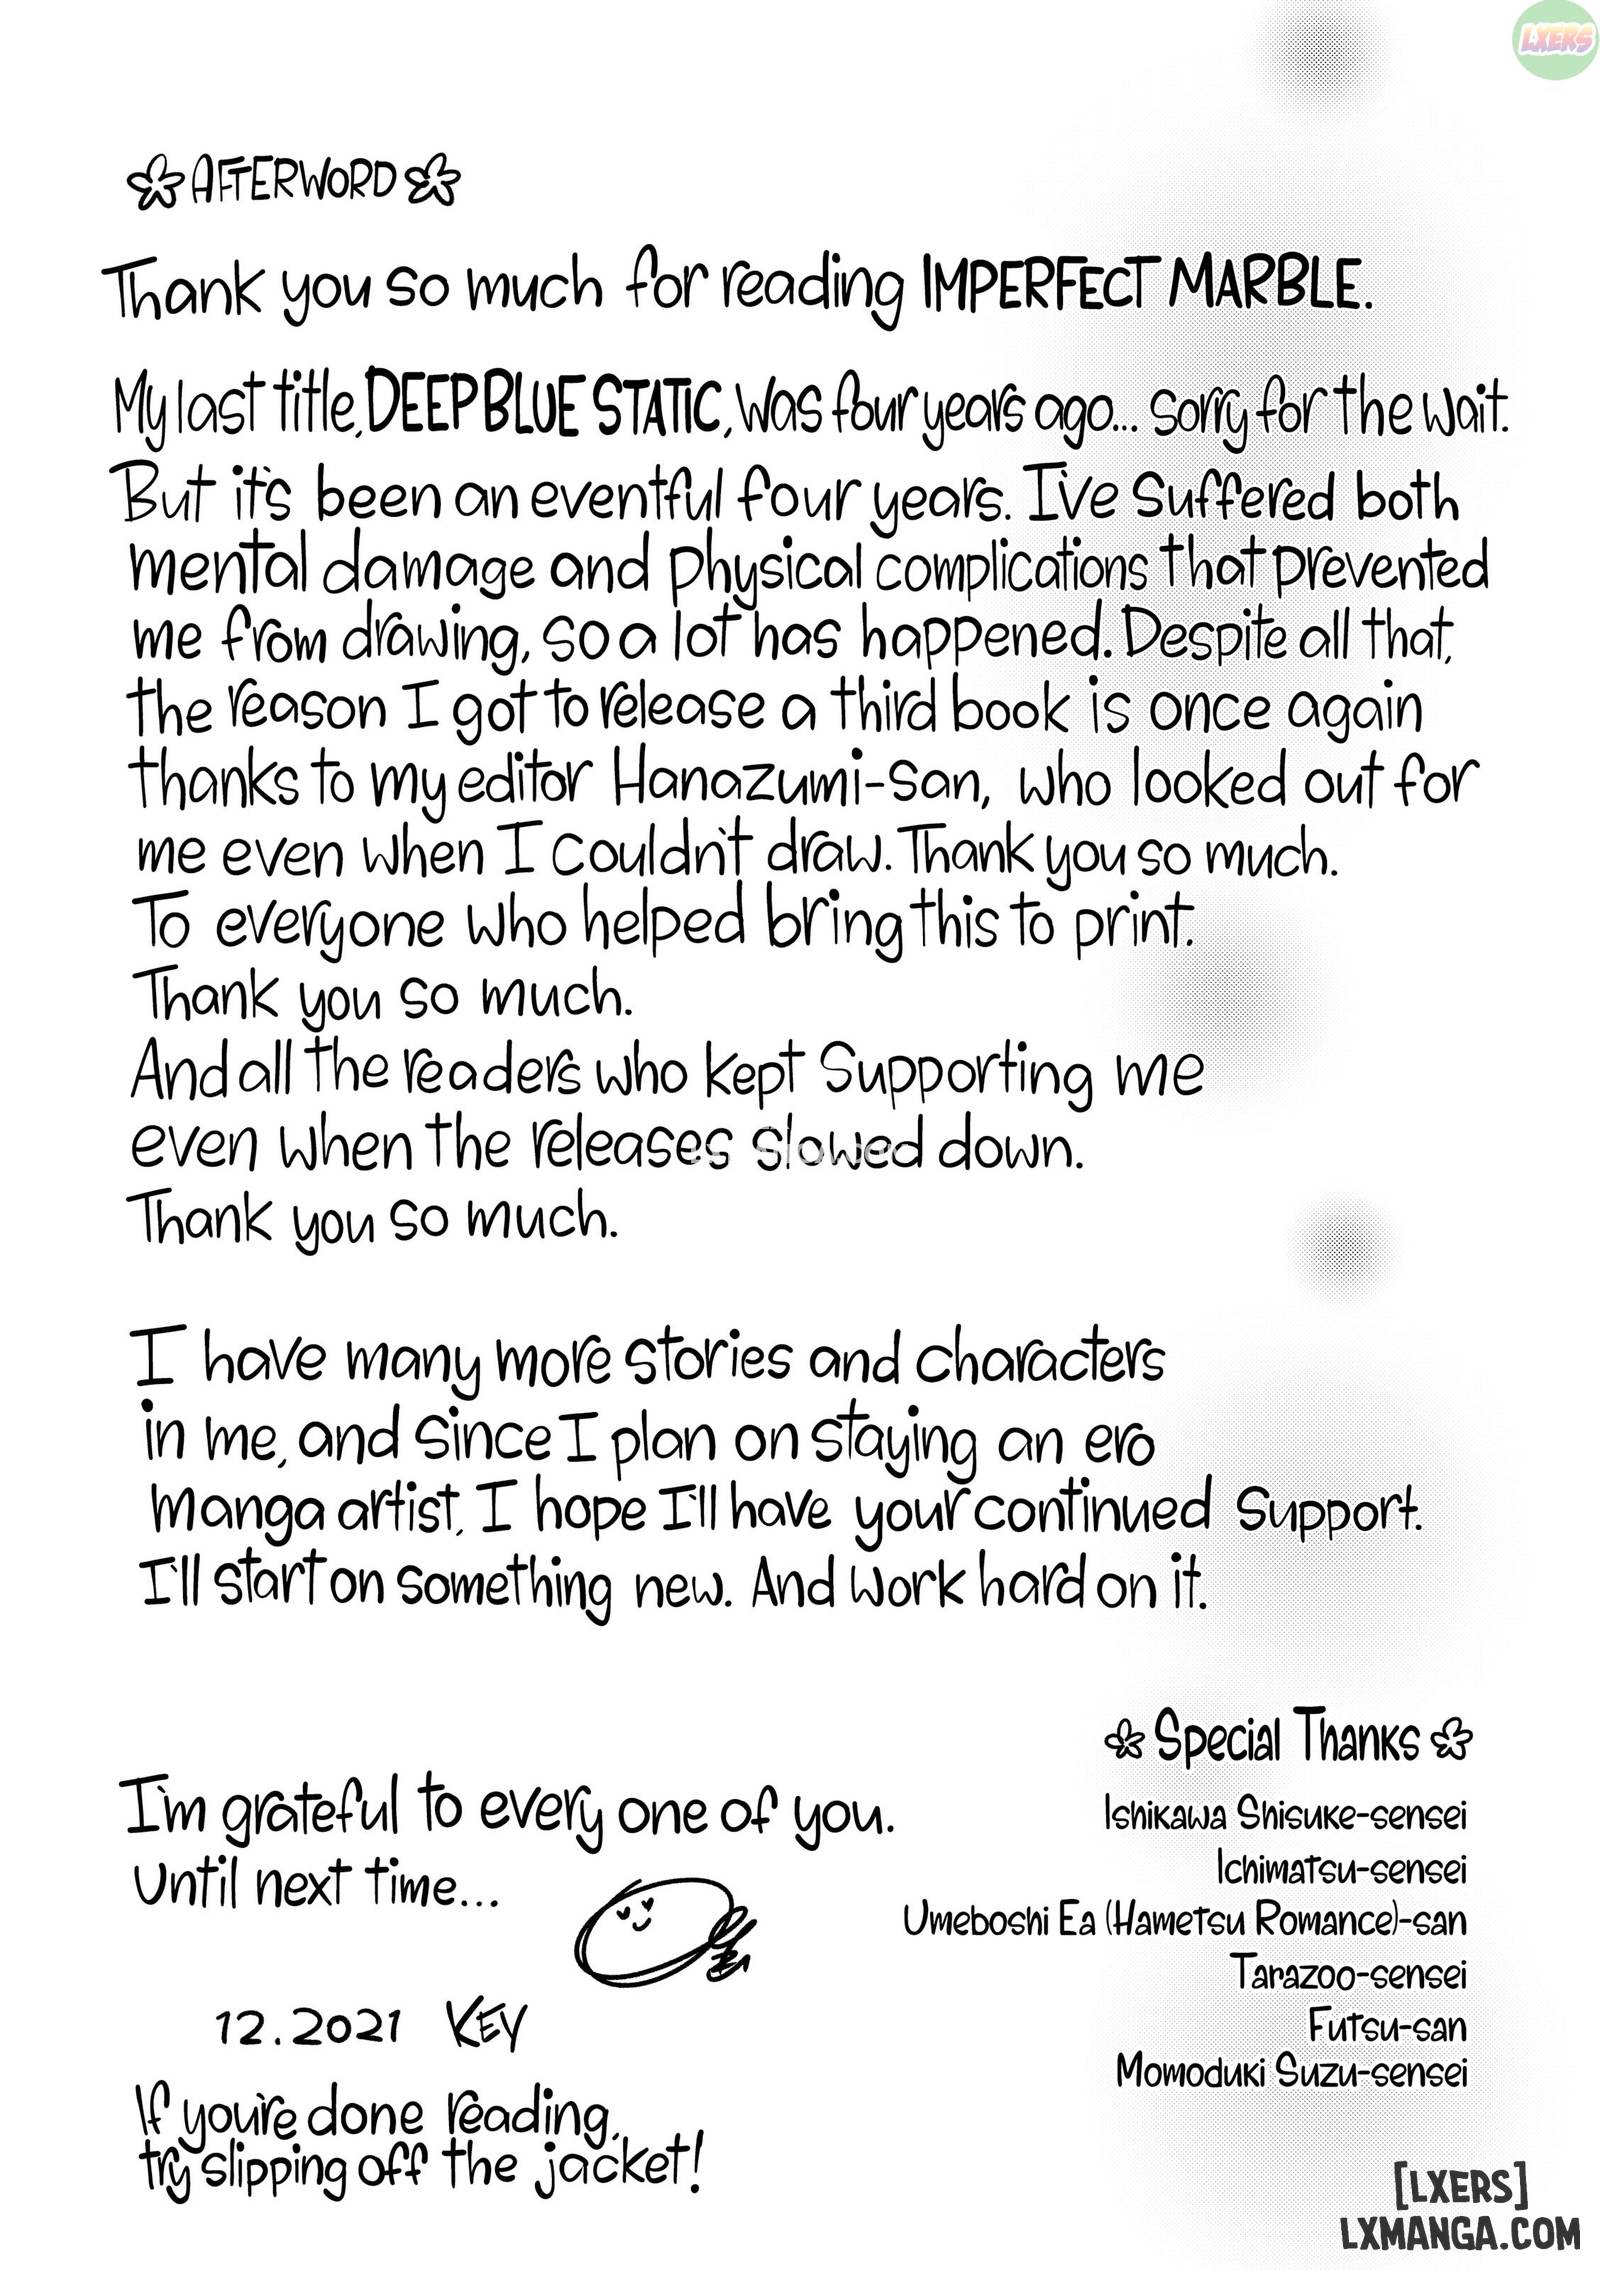 LXERS
AFTERWORD
Thank you so much for reading IMPERFECT MARBLE.
My last title, DEEP BLUE STATIC, was four years ago... sorry for the wait.
But it's been an eventful four years. I've suffered both
mental damage and physical complications that prevented
me from drawing, so a lot has happened. Despite all that,
the reason I got to release a third book is once again
thanks to my editor Hanazumi-san, who looked out for
me even when I couldn't draw. Thank you so much.
To everyone who helped bring this to print.
Thank you so much.
And all the readers who kept supporting me
even when the releases slowed down.
Thank you so much.
I have many more stories and characters
in me, and since I plan on staying an ero
manga artist, I hope I'll have your continued support.
I'll start on something new. And work hard on it.
I'm grateful to every one of you.
Until next time...
12.2021 KEY
If you're done reading,
try slipping off the jacket!
Special Thanks
Ishikawa Shisuke-sensei
Ichimatsu-sensei
Umeboshi Ea (Hametsu Romance)-san
Tarazoo-sensei
Futsu-san
Momoduki Suzu-sensei
[LXERS]
LXMANGA.COM